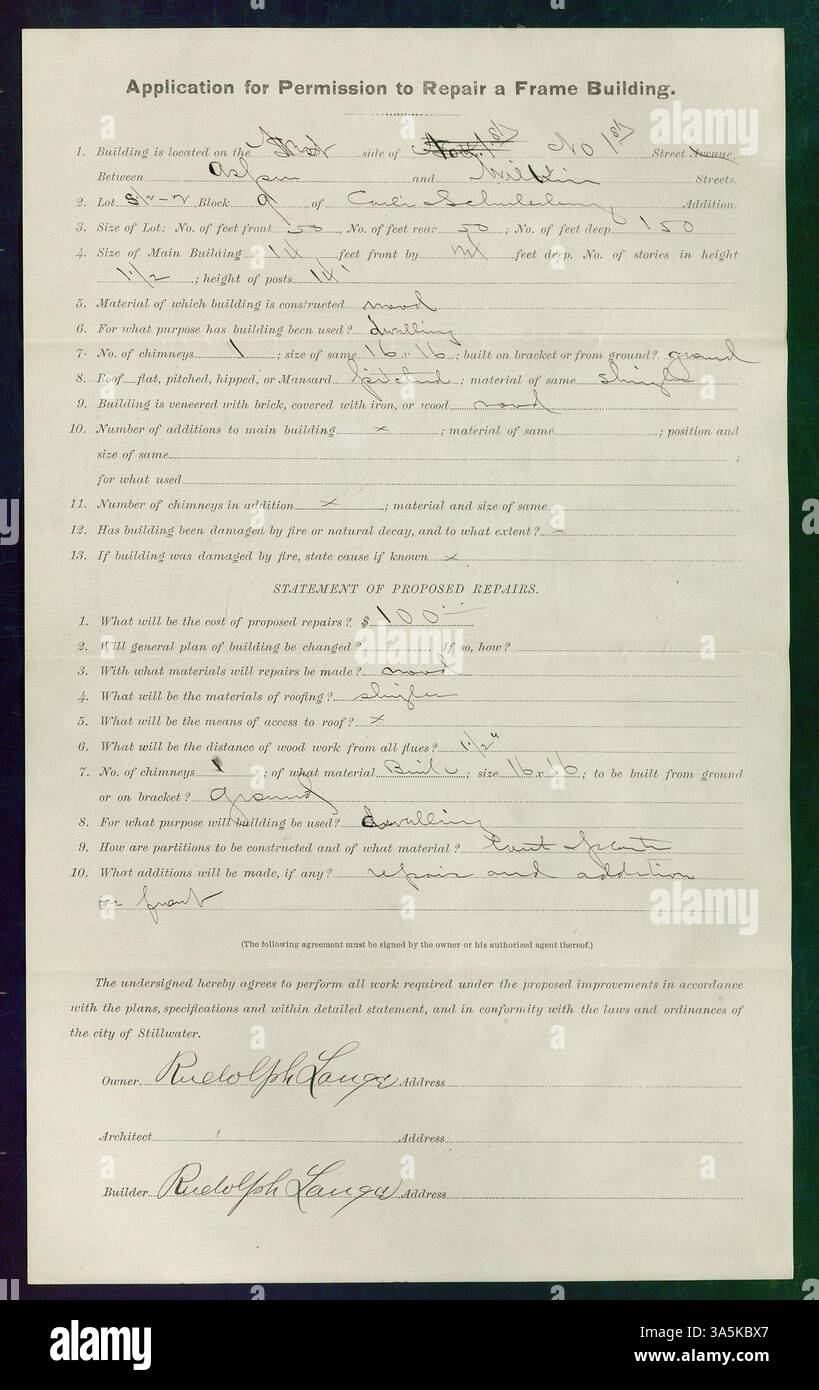 Application for Permission to Repair a Frame Building.
1. Building is located on the West side of No 1st Street Avenue.
Between Aspen and Wilkin Streets.
2. Lot S 1/2 - 2 Block 9 of Carli Schulenburg Addition.
3. Size of Lot: No. of feet front 50, No. of feet rear 50; No. of feet deep 150
4. Size of Main Building 14 feet front by feet deep. No. of stories in height
1 1/2; height of posts 14'
5. Material of which building is constructed wood
6. For what purpose has building been used? dwelling
7. No. of chimneys 1; size of same 16 x 16; built on bracket or from ground? ground
8. Roof flat, pitched, hipped, or Mansard pitched; material of same shingles
9. Building is veneered with brick, covered with iron, or wood wood
10. Number of additions to main building x; material of same; position and
size of same;
for what used
11. Number of chimneys in addition x; material and size of same
12. Has building been damaged by fire or natural decay, and to what extent? x
13. If building was damaged by fire, state cause if known x
STATEMENT OF PROPOSED REPAIRS.
1. What will be the cost of proposed repairs? $ 100
2. Will general plan of building be changed? If so, how?
3. With what materials will repairs be made? wood
4. What will be the materials of roofing? shingles
5. What will be the means of access to roof? x
6. What will be the distance of wood work from all flues? 1 1/2"
7. No. of chimneys 1; of what material Brick; size 16 x 16; to be built from ground
or on bracket? ground
8. For what purpose will building be used? dwelling
9. How are partitions to be constructed and of what material?
10. What additions will be made, if any? repair and addition
on front
(The following agreement must be signed by the owner or his authorized agent thereof.)
The undersigned hereby agrees to perform all work required under the proposed improvements in accordance
with the plans, specifications and within detailed statement, and in conformity with the laws and ordinances of
the city of Stillwater.
Owner Rudolph Lange Address
Architect Address
Builder Rudolph Lange Address
alamy
Image ID: 3A5KBX7
www.alamy.com